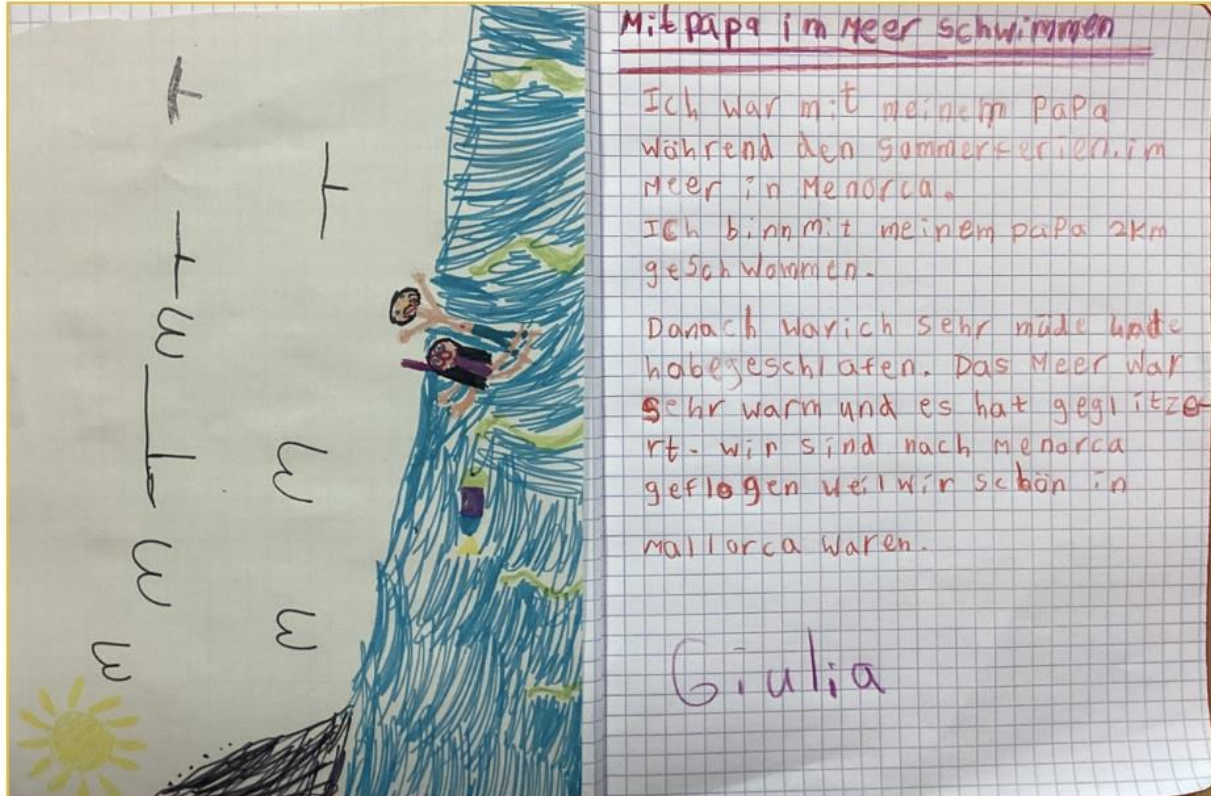 Mit papa im Meer schwimmen
Ich war mit meinem PaPa
während den Sommerferien. im
Meer in Menorca.
Ich binn mit meinem paPa 2Km
geschwommen.
Danach war ich sehr müde unde
habe geschlafen. Das Meer war
sehr warm und es hat geglitze-
rt. wir sind nach Menorca
geflogen weil wir schon in
Mallorca waren.
Giulia